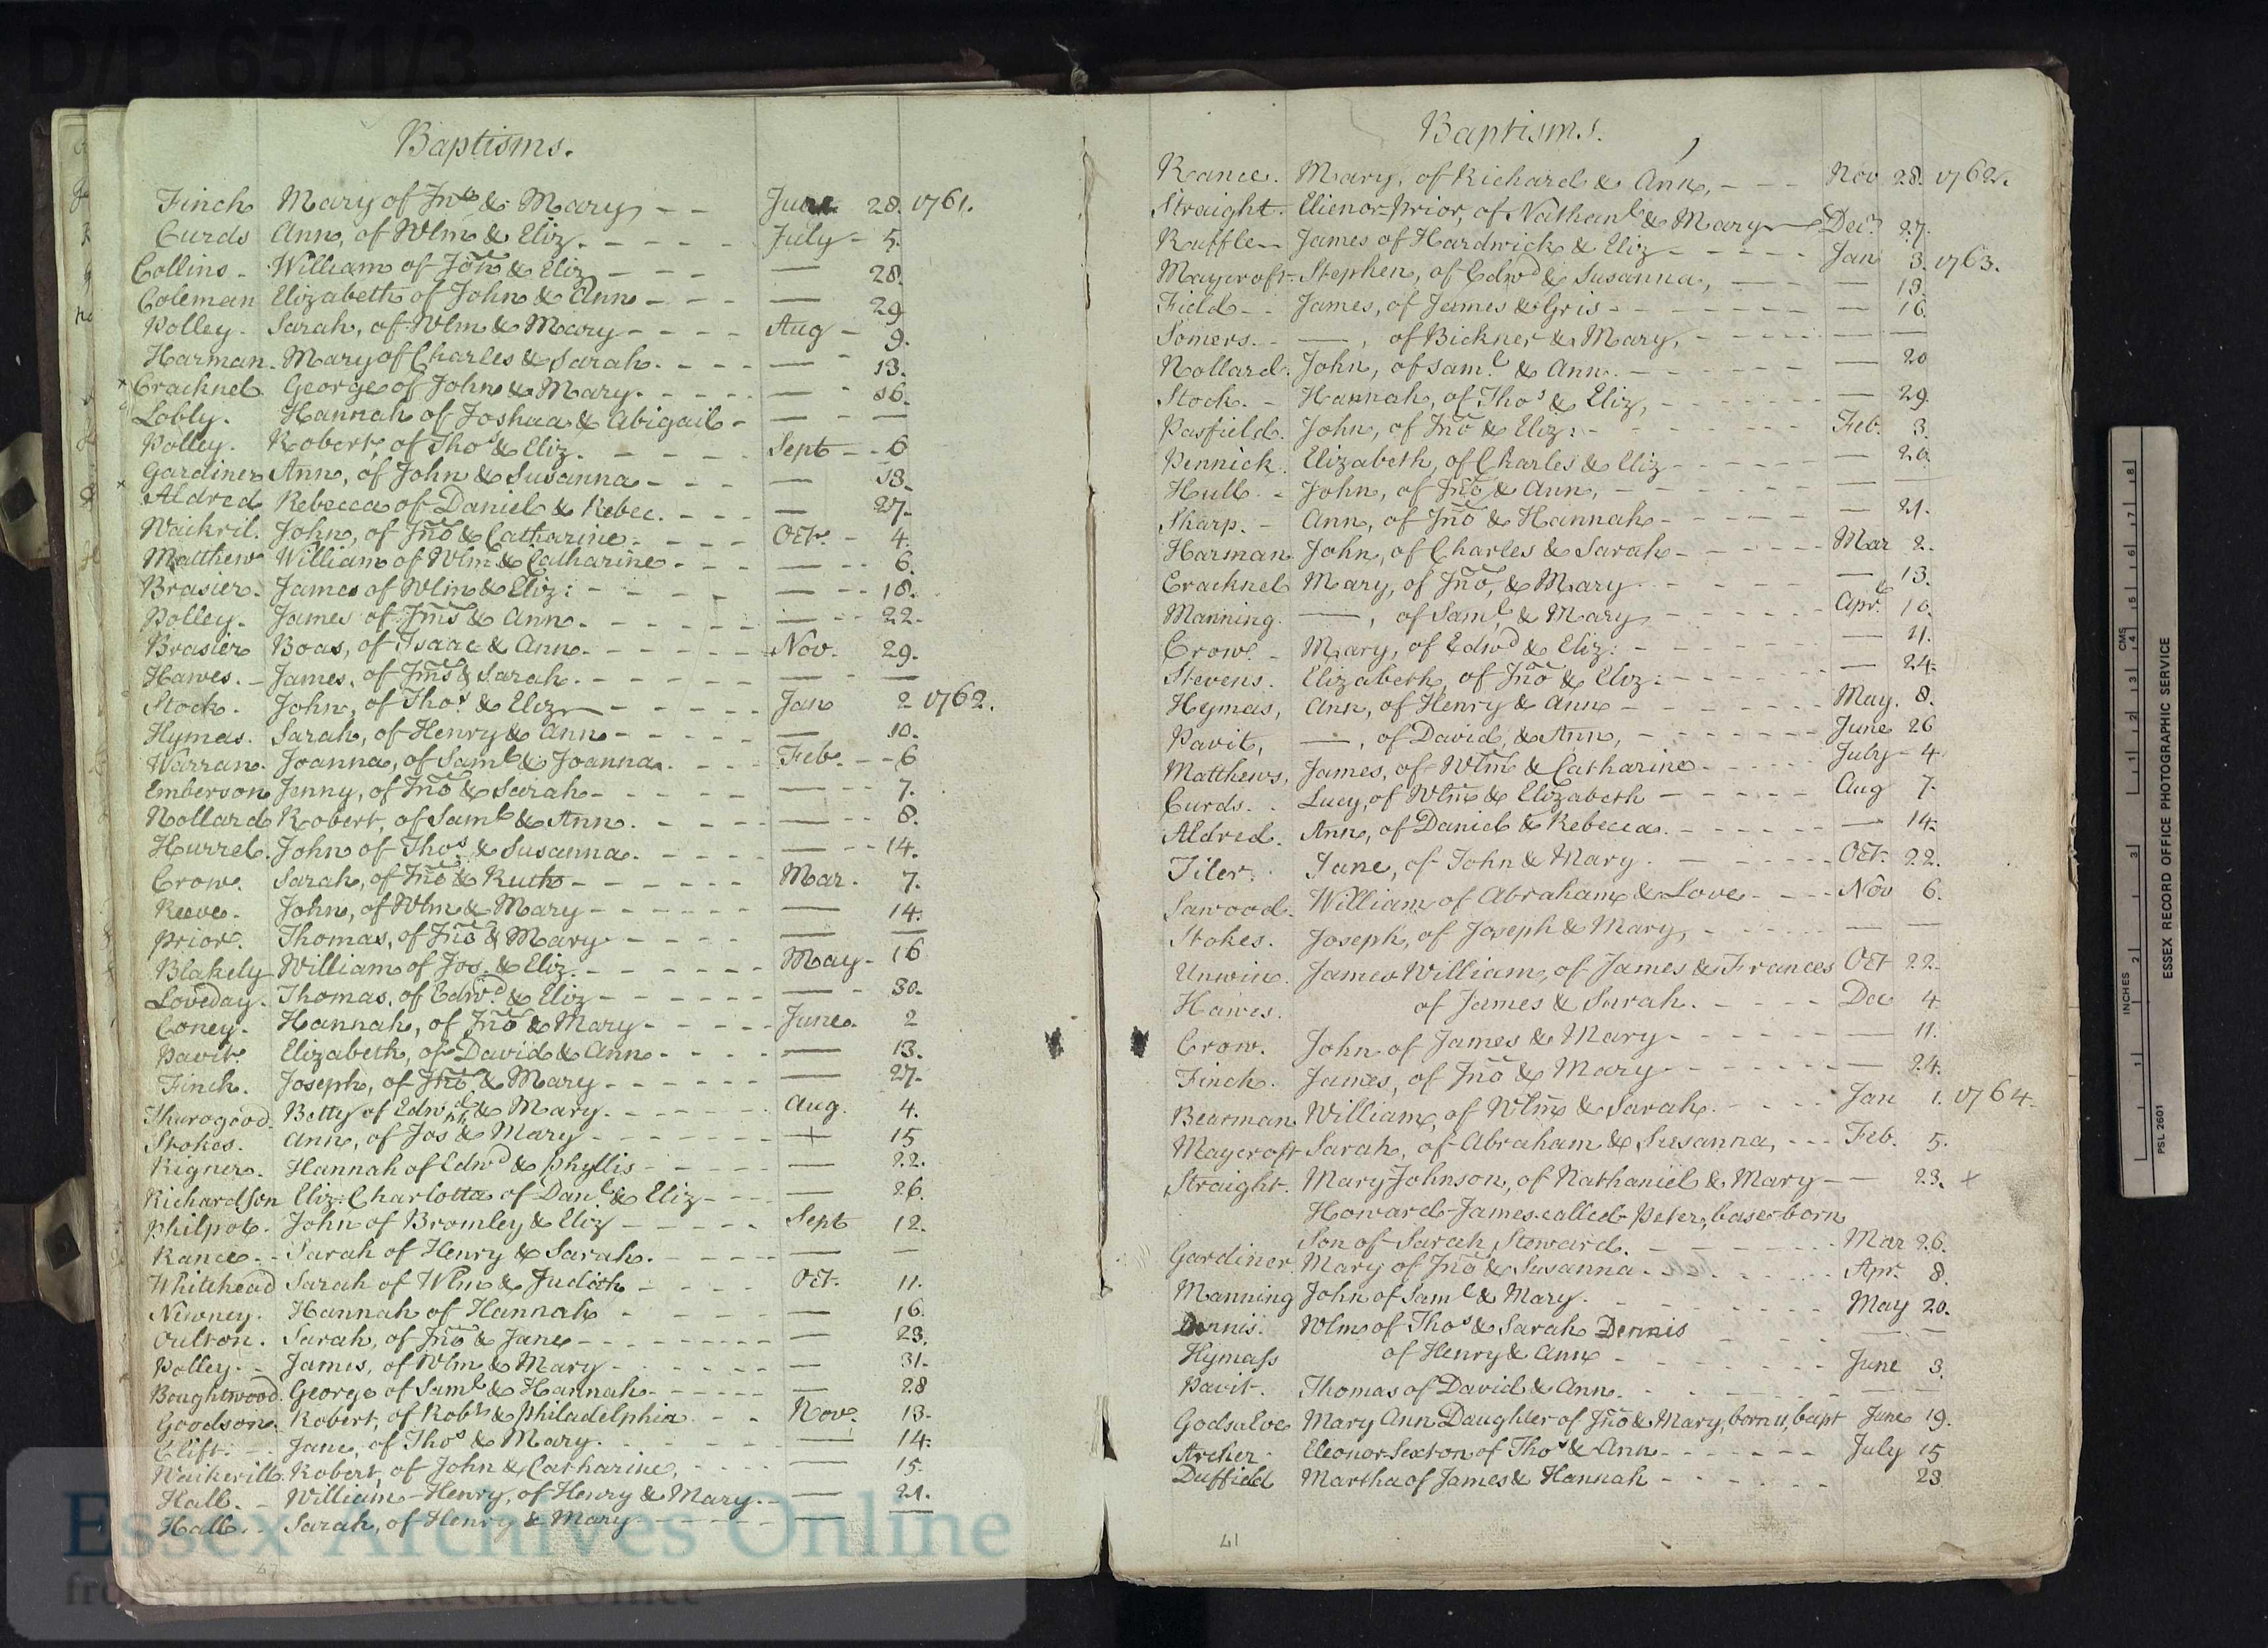 D/P 65/1/3
Baptisms.
Finch Mary of Jno & Mary - - June 28. 1761.
Curds Ann, of Wlm & Eliz. - - - - July - 5.
Collins - William of Jno & Eliz - - - — 28.
Coleman Elizabeth of John & Ann - - - - — 29
Polley - Sarah, of Wlm & Mary - - - - Aug - 9.
Harman. Mary of Charles & Sarah. - - - - — - 13.
Cracknel George of John & Mary. - - - - — - 16.
Lobly. Hannah of Joshua & Abigail - — - —
Polley. Robert, of Thos & Eliz. - - - - Sept - - 6
Gardiner Ann, of John & Susanna - - - - — 13.
Aldred Rebecca of Daniel & Rebec. - - - — 27.
Waickril. John, of Jno & Catharine. - - - - Oct. - 4.
Matthew William of Wlm & Catharine - - - — - - 6.
Brasier. James of Wlm & Eliz: - - - - - — - - 18.
Polley. James of Jms & Ann. - - - - - — - - 22.
Brasier Boas, of Isaac & Ann. - - - - - Nov. 29.
Hawes. - James, of Jms & Sarah. - - - - - — - —
Stock. John, of Thos. & Eliz - - - - - Jan 2 1762.
Hymas. Sarah, of Henry & Ann - - - - - — 10.
Warran. Joanna, of Saml & Joanna. - - - Feb. - - 6
Emberson Jenny, of Jno & Sarah - - - - - — - - 7.
Nollard Robert, of Saml & Ann. - - - - — - - 8.
Hurrel. John of Thos. & Susanna. - - - - — - - 14.
Crow. Sarah, of Jno & Ruth - - - - - - Mar. 7.
Reeve. John, of Wlm & Mary - - - - - - — 14.
Prior. Thomas, of Jno & Mary - - - - - — —
Blakely William of Jos. & Eliz. - - - - - May - 16
Loveday. Thomas, of Edwd & Eliz - - - - - - — - 30.
Coney. Hannah, of Jno & Mary - - - - - June. 2
Pavit. Elizabeth, of David & Ann - - - - — 13.
Finch. Joseph, of Jno & Mary - - - - - - — 27.
Thurogood. Betty of Edwd & Mary. - - - - - - Aug. 4.
Stokes. Ann, of Jos & Mary - - - - - - — 15
Rigner. Hannah of Edwd & Phyllis - - - - - — 22.
Richardson Eliz: Charlotta of Danl & Eliz - - - — 26.
Philpot. John of Bromley & Eliz - - - - - Sept 12.
Rance. - Sarah of Henry & Sarah. - - - - — —
Whitehead Sarah of Wlm & Judith - - - - Oct. 11.
Newney. Hannah of Hannah - - - - - — 16.
Oulton. Sarah, of Jno & Jane - - - - - - - — 23.
Polley. - James, of Wlm & Mary - - - - - - — 31.
Boughtwood. George of Saml & Hannah - - - - - — 28
Goodson. Robert, of Robt & Philadelphia - - Nov. 13.
Clift. - Jane, of Thos & Mary. - - - - - — 14.
Waikerill. Robert, of John & Catharine, - - - - — 15.
Hall. - William-Henry, of Henry & Mary. - — 21.
Hall. - Sarah, of Henry & Mary - - - - - — —
Baptisms.
Rance. Mary, of Richard & Ann, - - - Nov 28. 1762.
Straight. Elienor-Prior, of Nathanl & Mary - Decr. 27.
Ruffle - James of Hardwick & Eliz - - - - - Jan 3. 1763.
Maycroft - Stephen, of Edwd & Susanna, - - - — 13.
Field - - James, of James & Gris - - - - - - - — 16.
Somers. - —, of Bickner & Mary, - - - - — —
Nollard. John, of Saml. & Ann. - - - - - - — 20
Stock. - Hannah, of Thos & Eliz, - - - - - - — 29.
Pasfield. John, of Jno & Eliz: - - - - - - - Feb. 3.
Pennick. Elizabeth, of Charles & Eliz - - - - - — 20.
Hull. - John, of Jno & Ann, - - - - - - - — —
Sharp. - Ann, of Jno & Hannah - - - - - - — 21.
Harman. John, of Charles & Sarah - - - - - - Mar 2.
Cracknel Mary, of Jno, & Mary - - - - - - — 13.
Manning. —, of Saml, & Mary - - - - - - Aprl. 10.
Crow. - Mary, of Edwd & Eliz: - - - - - - — 11.
Stevens. Elizabeth, of Jno & Eliz: - - - - - - — 24.
Hymas, Ann, of Henry & Ann - - - - - - - May. 8.
Pavit, —, of David, & Ann, - - - - - - - June 26
Matthews, James, of Wlm & Catharine - - - - - - July - 4.
Curds. . Lucy, of Wlm & Elizabeth - - - - - Aug 7.
Aldred. Ann, of Daniel & Rebecca. - - - - - - — 14.
Tiler. Jane, of John & Mary. - - - - - - Oct. 22.
Sawood. William of Abraham & Love - - - - Nov 6.
Stokes. Joseph, of Joseph & Mary, - - - - - - — —
Unwin. James William, of James & Frances Oct 22.
Hawes. of James & Sarah. - - - - Dec 4.
Crow. John of James & Mary - - - - - - — 11.
Finch. James, of Jno & Mary - - - - - - — 24.
Bearman William, of Wlm & Sarah. - - - - - Jan 1. 1764.
Maycroft Sarah, of Abraham & Susanna, - - - Feb. 5.
Straight. Mary Johnson, of Nathaniel & Mary - — 23. x
Howard-James-called Peter, base-born
Son of Sarah Steward. - - - - - - Mar 26.
Gardiner. Mary of Jno & Susanna. - - - - - Apr. 8.
Manning John of Saml & Mary. - - - - - - May 20.
Dennis. Wlm of Thos & Sarah Dennis - - - — —
Hymass of Henry & Ann - - - - - - - June 3.
Pavit. Thomas of David & Ann. - - - - - — —
Godsalve Mary Ann Daughter of Jno & Mary, born 11, bapt June 19.
Archer - Eleonor-Sexton of Thos & Ann - - - - - - July 15
Duffield Martha of James & Hannah - - - - - - 23
41
INCHES 1 2 3
CMS 1 2 3 4 5 6 7 8
ESSEX RECORD OFFICE PHOTOGRAPHIC SERVICE
PSL 2601
Essex Archives Online
from the Essex Record Office